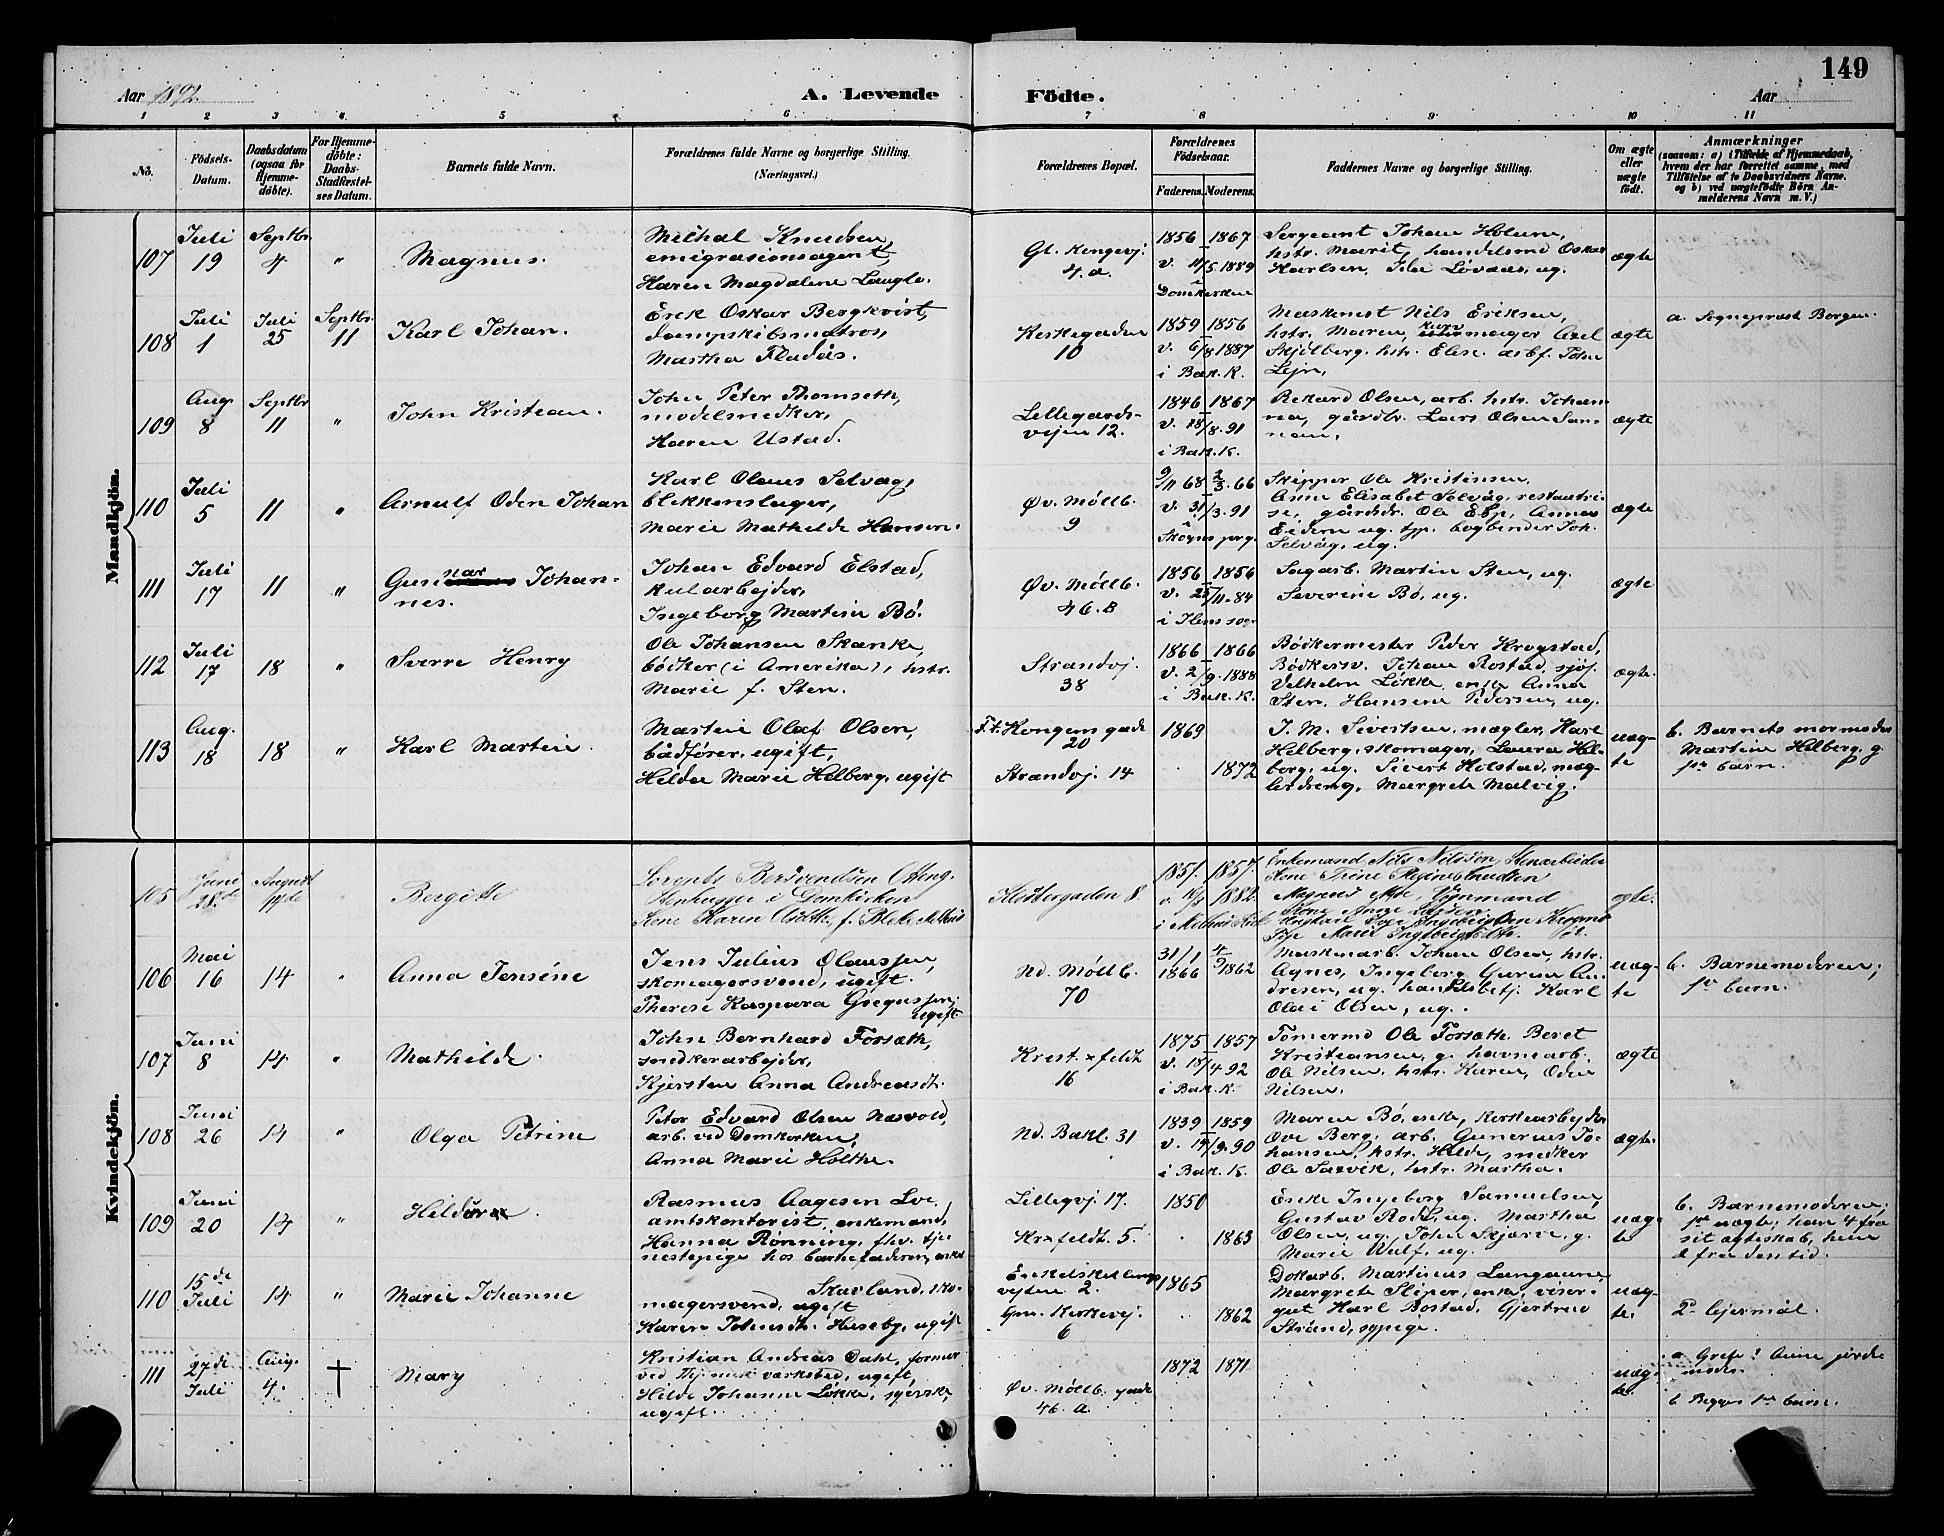 149
Aar 1892.
A. Levende Födte.
Aar
1 2 3 4 5 6 7 8 9 10 11
No.
Födsels-
Datum.
Daabsdatum
(ogsaa for
Hjemme-
döbte).
For Hjemme-
döbte:
Daabs-
Stadfæstel-
ses Datum.
Barnets fulde Navn.
Forældrenes fulde Navne og borgerlige Stilling.
(Næringsvei.)
Forældrenes Bopæl.
Forældrenes
Födselsaar.
Faderens. Moderens.
Faddernes Navne og borgerlige Stilling.
Om ægte
eller
uægte
födt.
Anmærkninger
(saasom: a) i Tilfælde af Hjemmedaab,
hvem der har forrettet samme, med
Tilföielse af to Daabsvidners Navne.
og b) ved uægtefödte Börn An-
melderens Navn m. V.)
Mandkjön.
107
Juli
19
Septbr.
4
"
Magnus.
Michal Knudsen,
emigrasionsagent,
Karen Magdalene Laugle.
Gl. Kongevj.
4. a.
1856 - 1867
v. 11/5.1889
i
Domkirken
Sergeant Johan Holum,
hstr. Marit, handelsmd Oskar
Karlsen, Ida Lövaas, ug.
ægte
108
Juli
1
Juli
25
Septbr.
11
Karl Johan.
Erik Oskar Bergkvist,
dampskibsmatros,
Martha Fladås.
Kirkegaden
10
1859 - 1856
v. 6/8 1887
i Bak. K.
Maskinist Nils Eriksen,
hstr. Maren, kurvmager Axel
Skjölberg, hstr. Elise, arbf. John
Lejn,
ægte
a. Sogneprest Borgen.
109
Aug.
8
Septbr
11
"
John Kristian.
John Peter Thomseth,
modelsnedker,
Karen Ustad.
Lillegårds-
vejen 12.
1846 - 1867
v. 28/8.91
i Bak. K.
Rikard Olsen, arb. hstr. Johan-
na, gårdbr. Lars Olsen San-
nan,
ægte
110
Juli
5
11
"
Arnulf Oden Johan
Karl Olaus Selvåg,
blikkenslager,
Marie Mathilde Hansen.
Øv. Møllb.
9
9/11 68 2/3.66
v. 31/3.91
i
Skogns prg.
Skipper Ole Kristensen,
Anne Elisabet Selvåg, restautri-
se, gårdbr. Ole Esp, Anna
Eidem ug. tjp. bogbinder Joh.
Selvåg, ug.
ægte
111
Juli
17
11
"
Gunnar Johan-
nes.
Johan Edvard Elstad,
kularbejder,
Ingeborg Martine Bö.
Øv. Møllb.
46. B
1856 - 1856
v. 25/11.84
i Ilens sogn
Sagarb. Martin Sten, ug.
Severine Bö, ug.
ægte
112
Juli
17
18
"
Sverre Henry
Ole Johansen Skanke,
bödker (i Amerika), hstr.
Marie f. Sten.
Strandvj.
38
1866 - 1866
v. 2/9.1888
i Bak. K.
Bödkermester Peder Krogstad,
Bödkersv. Johan Rostad, sjöf.
Vilhelm Lökke, enke Anna
Sten, Hansine Pedersen, ug.
ægte.
113
Aug.
18
18
"
Karl Martin.
Martin Olaf Olsen,
bådförer, ugift,
Hilda Marie Helberg, ugift
Ft. Kongens gade
20
Strandvj. 14
1869
1872
J. M. Sivertsen, mægler, Karl
Helberg, skomager, Laura Hel-
berg, ug. Sivert Holstad, mæg-
lerdreng, Margrete Malvig.
uæg-
te
b. Barnets mormoder
Martine Helberg, g.
1ste barn.
Kvindekjön.
105
Juni
28de
August
14de
Bergitte
Stenhugger i Domkirken
Klostergaden 8
1851. 1857.
1882.
Enkemand Nils Nilssen Stenarbeider
ægte.
106
Mai
16
14
"
Anna Jensine
Jens Julius Olaussen,
skomagersvend, ugift.
Therese Kaspara Gregussen,
ugift
Nd. Møllb.
70
31/1
1866
4/9 1862
Maskinarb. Johan Olsen, hstr.
Agnes, Ingeborg Gurine An-
dresen, ug. handelsbetj. Karl
Olai Olsen, ug.
uæg-
te
b. Barnemoderen;
1ste barn.
107
Juni
8
14
"
Mathilde.
John Bernhard Forsæth,
snedkerarbejder,
Kjersten Anna Andreasdt.
Krist.feldt
16
1875 - 1857
v. 18/4 92
i Bak. K.
Tömermd Ole Forsæth, Beret
Kristiansen, g. havnearb.
Ole Nilsen, hstr. Karen, Oden
Nilsen.
ægte
108
Juni
26
14
"
Olga Petrine
Peter Edvard Olsen Næsvold,
arb. ved Domkirken,
Anna Marie Holthe.
Nd. Bakl. 31
1839 - 1859
v. 14/9.90
i Bak. K.
Maren Bö, enke, kirkearbejder
Ove Berg, arb. Gunerius Jo-
hansen, hstr. Hilda, snedker
Ole Saxvik, hstr. Martha.
ægte.
109
Juni
20
14
"
Hildur.
Rasmus Aagesen Loe
amtskontorist, enkemand,
Hanna Rönning, fhv. tje-
nestepige hos barnefaderen, enke
Lillegvj. 17.
Kr.feldt. 5.
1850
1863
Enke Ingeborg Samuelsen,
Gustav Rodè, ug. Martha
Olsen, ug. John Skjærve, g.
Marie Wulf, ug.
uæg-
te
b. Barnemoderen;
1ste uægte; han 4 fra
sit ægteskab, hun
2 fra den tid.
110
15de
Juli
14
"
Marie Johanne
Skavland, sko-
magersvend, ugift
Karen Johnsdt. Huseby, ugift
Enkelskillings-
vejten 2.
Gm. Kirkevj.
6
1865
1862
Dokarb. Martinus Langaune,
Margrete Sliper, enke, viser-
gut Karl Bostad, Gjertrud
Strand, sypige.
uæg-
te.
2det lejermål.
111
27de
Juli
Aug.
4.
†
Mary
Kristian Andreas Dahl, former
ved Thj. mek. værksted, ugift,
Hilda Johanne Lökke, syerske,
ugift.
Øv. Møllb. gade
46. a.
1872 1871
uæg-
te.
a. Grefe! Anne jorde-
moder.
b. Begges 1ste barn.